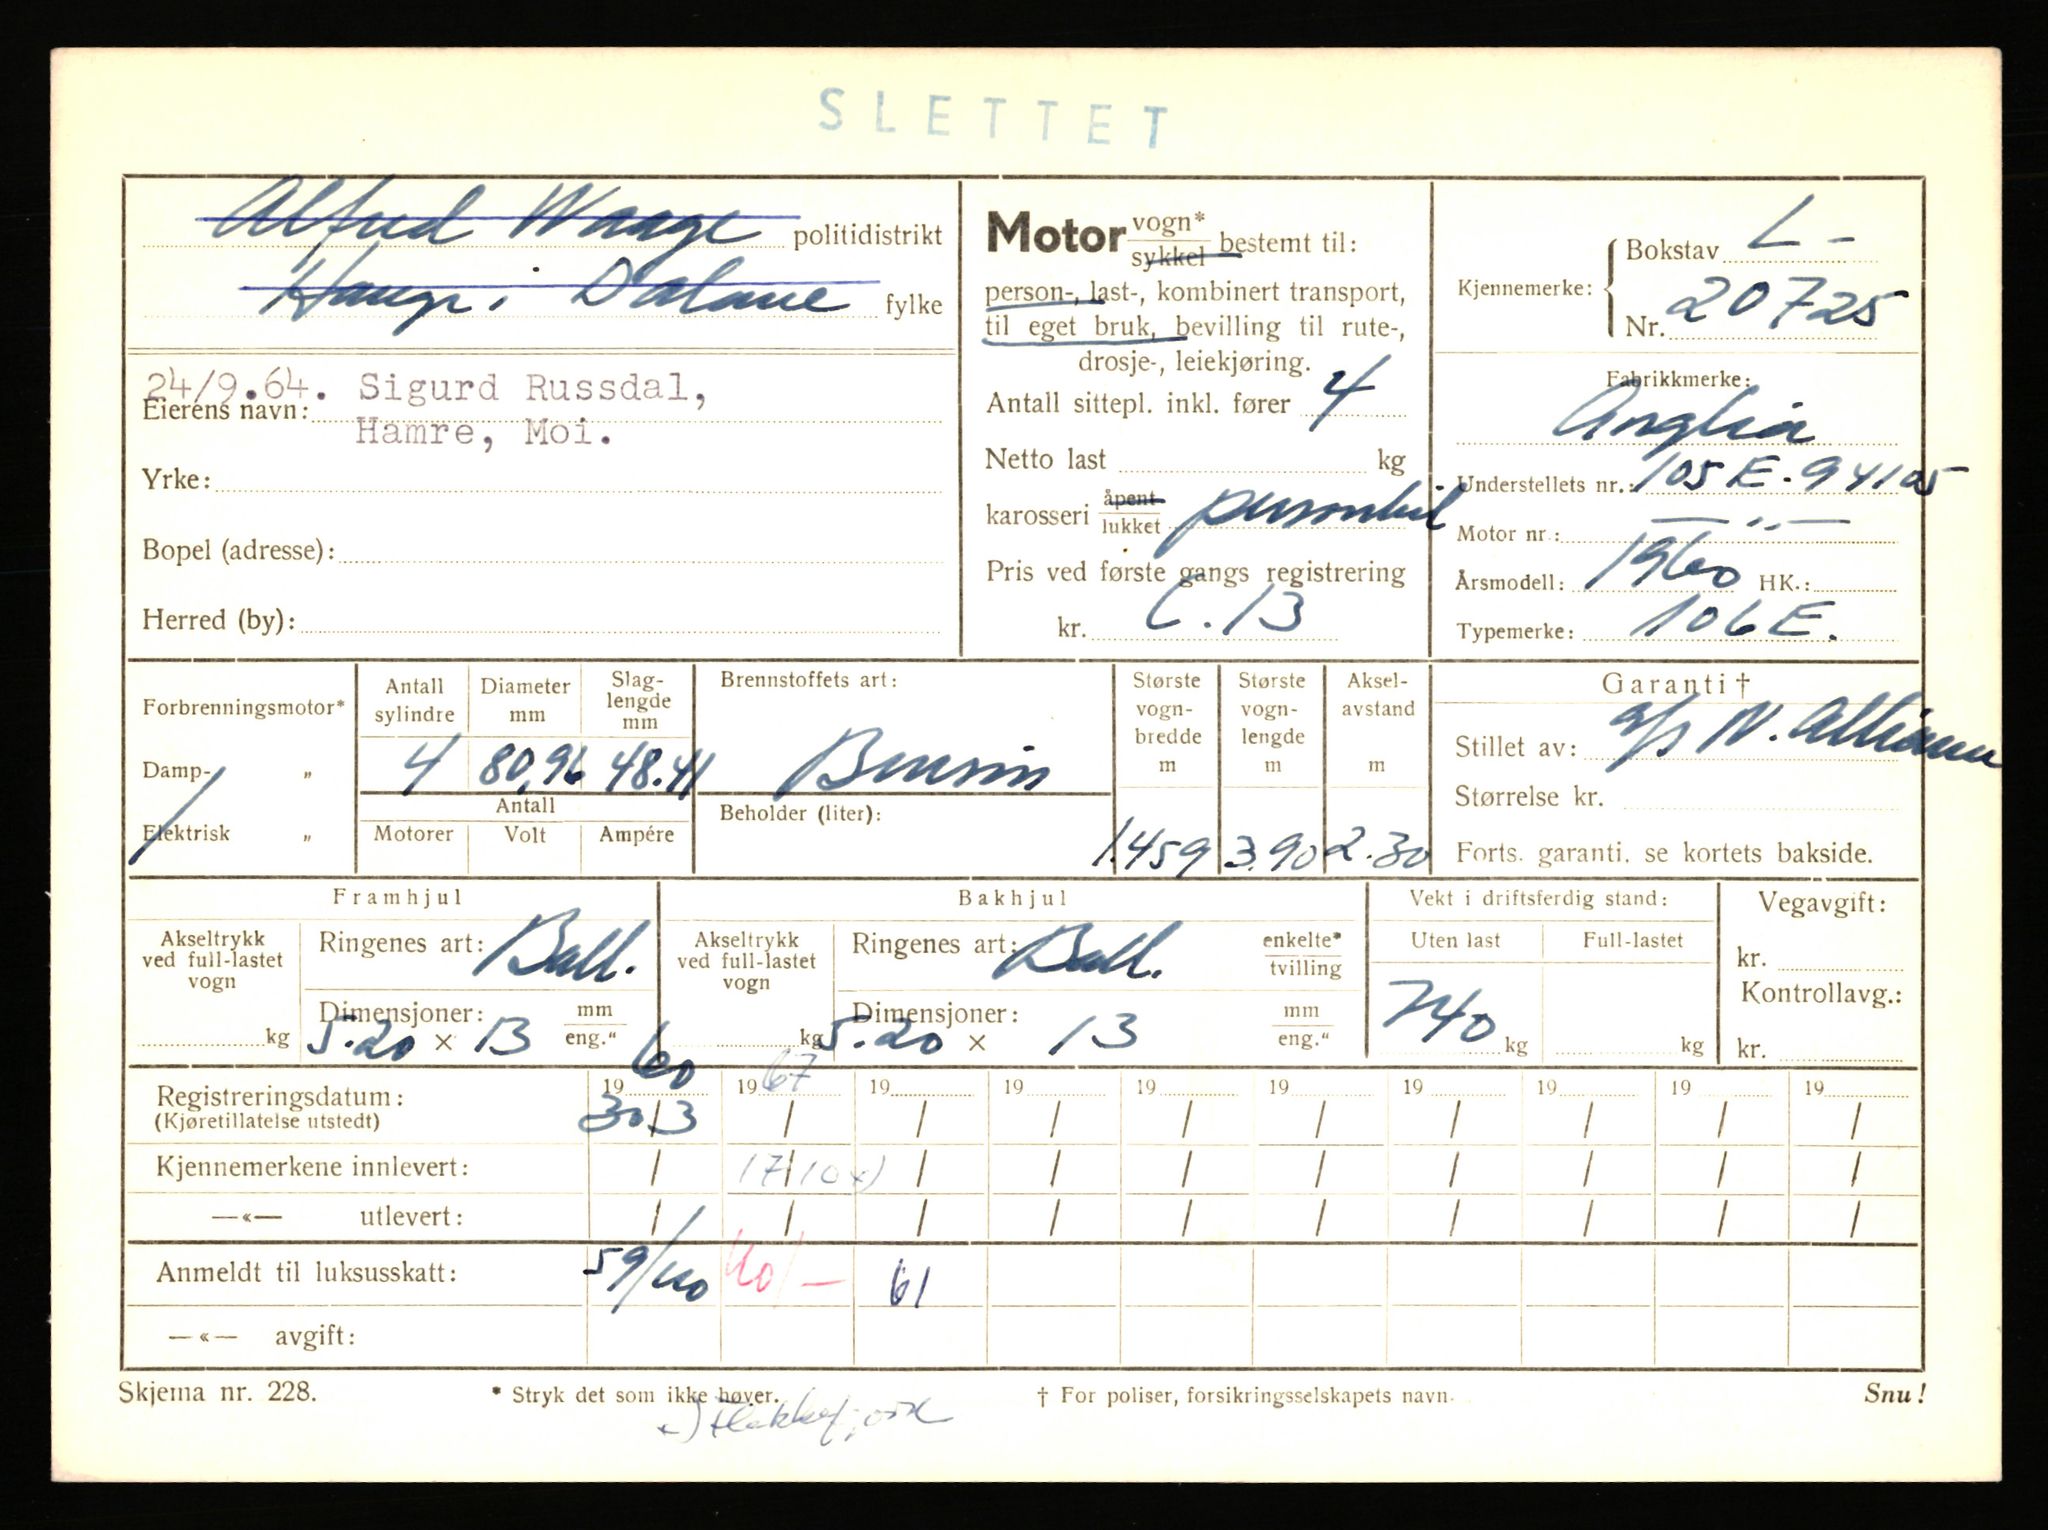 SLETTET
Alfred Waage politidistrikt
Hauge i Dalane fylke
24/9.64. Sigurd Russdal,
Eierens navn:
Hamre, Moi.
Yrke:
Bopel (adresse):
Herred (by):
Motor vogn* / sykkel bestemt til:
person-, last-, kombinert transport,
til eget bruk, bevilling til rute-,
drosje-, leiekjøring.
Antall sittepl. inkl. fører 4
Netto last kg
karosseri åpent / lukket personbil
Pris ved første gangs registrering
kr. C.13
Kjennemerke: Bokstav L -
Nr. 20725
Fabrikkmerke:
Anglia
Understellets nr.: 105 E - 94105
Motor nr.: — " —
Årsmodell: 1960 HK.:
Typemerke: 106 E.
Forbrenningsmotor*
Damp- „
Elektrisk „
Antall sylindre 4
Diameter mm 80,96
Slaglengde mm 48.41
Antall
Motorer Volt Ampére
Brennstoffets art:
Bensin
Beholder (liter):
Største vognbredde m 1.459
Største vognlengde m 3.90
Akselavstand m 2.30
Garanti †
Stillet av: a/s N. Allianse
Størrelse kr.
Forts. garanti. se kortets bakside.
Framhjul
Akseltrykk ved full-lastet vogn kg
Ringenes art: Ball.
Dimensjoner: mm / eng."
5.20 × 13
Bakhjul
Akseltrykk ved full-lastet vogn kg
Ringenes art: Ball. enkelte* / tvilling
Dimensjoner: mm / eng."
5.20 × 13
Vekt i driftsferdig stand:
Uten last Full-lastet
740 kg kg
Vegavgift:
kr.
Kontrollavg.:
kr.
19 60 19 67 19 19 19 19 19 19 19 19
Registreringsdatum: 30/3 / / / / / / / / /
(Kjøretillatelse utstedt)
Kjennemerkene innlevert: / 17/10 x) / / / / / / / /
—«— utlevert: / / / / / / / / / /
Anmeldt til luksusskatt: 59/60 60/- 61
—«— avgift:
Skjema nr. 228. * Stryk det som ikke høver. † For poliser, forsikringsselskapets navn. Snu!
x) Flekkefjord